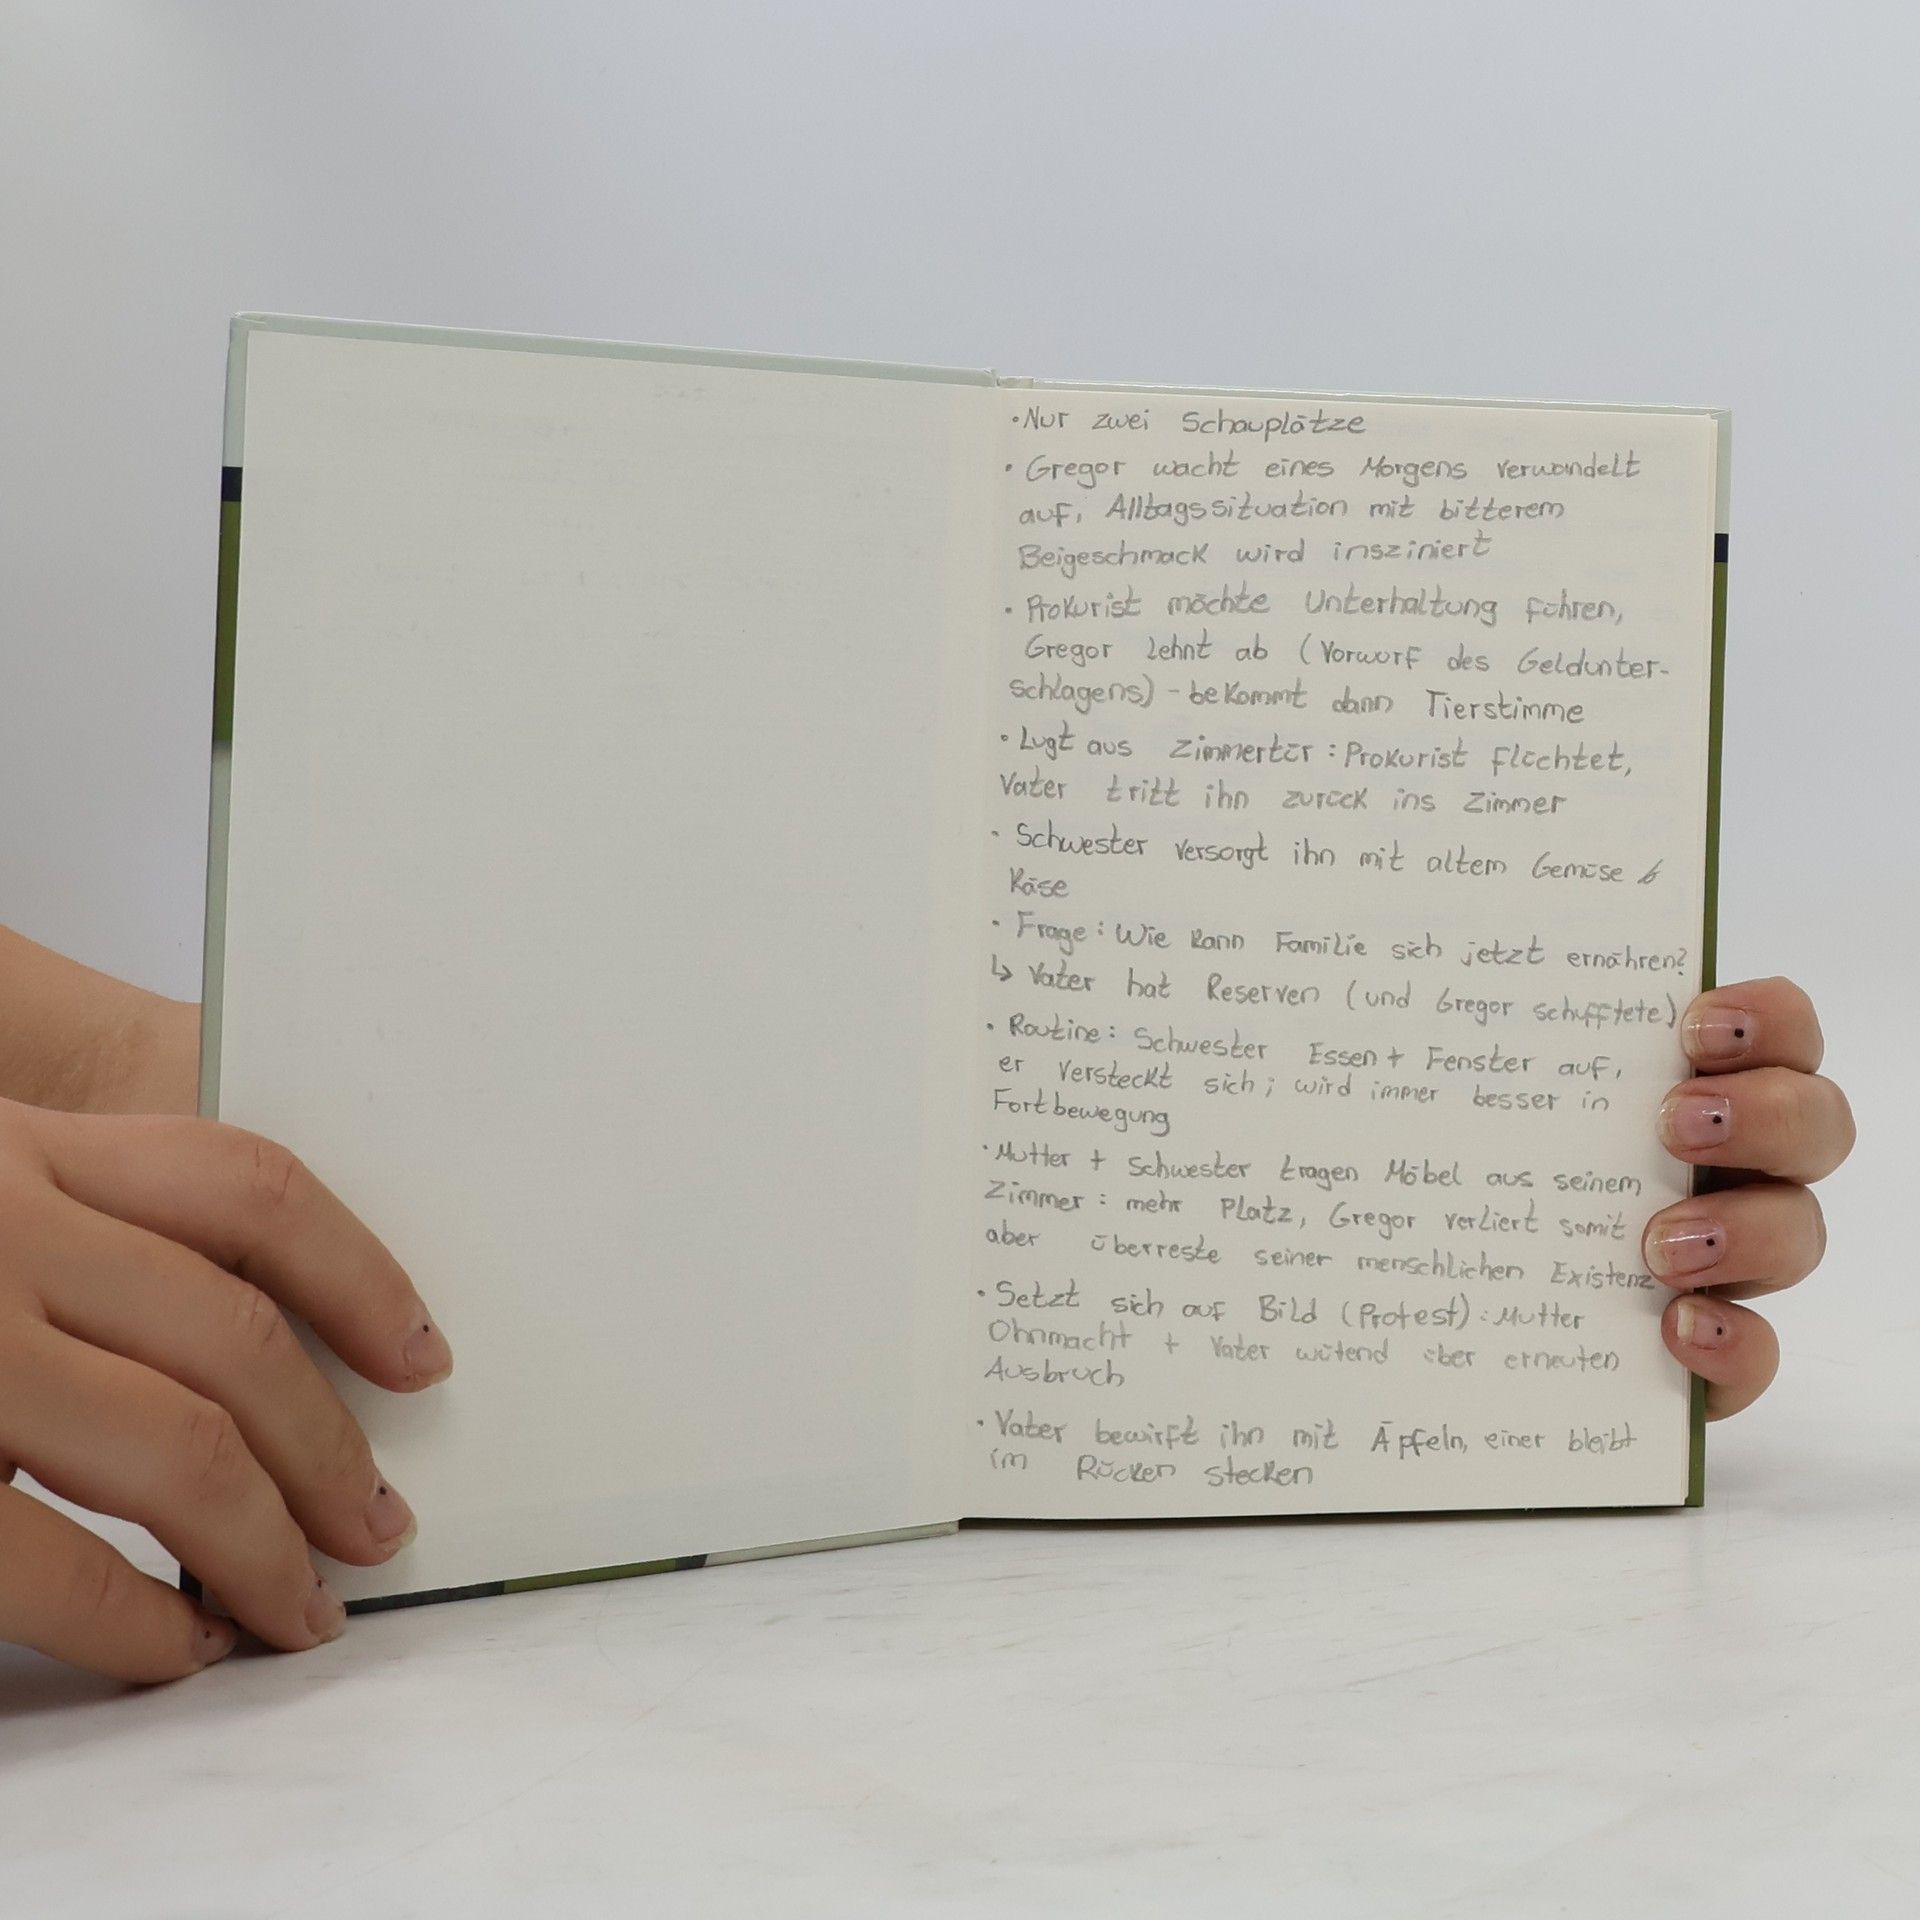 • Nur zwei Schauplätze
• Gregor wacht eines Morgens verwandelt
auf, Alltagssituation mit bitterem
Beigeschmack wird insziniert
• Prokurist möchte Unterhaltung führen,
Gregor lehnt ab (Vorwurf des Geldunter-
schlagens) - bekommt dann Tierstimme
• Lugt aus Zimmertür: Prokurist flüchtet,
Vater tritt ihn zurück ins Zimmer
• Schwester versorgt ihn mit altem Gemüse &
Käse
• Frage: Wie kann Familie sich jetzt ernähren?
↳ Vater hat Reserven (und Gregor schufftete)
• Routine: Schwester Essen + Fenster auf,
er versteckt sich; wird immer besser in
Fortbewegung
• Mutter + Schwester tragen Möbel aus seinem
Zimmer: mehr Platz, Gregor verliert somit
aber überreste seiner menschlichen Existenz
• Setzt sich auf Bild (Protest): Mutter
Ohnmacht + Vater wütend über erneuten
Ausbruch
• Vater bewirft ihn mit Äpfeln, einer bleibt
im Rücken stecken